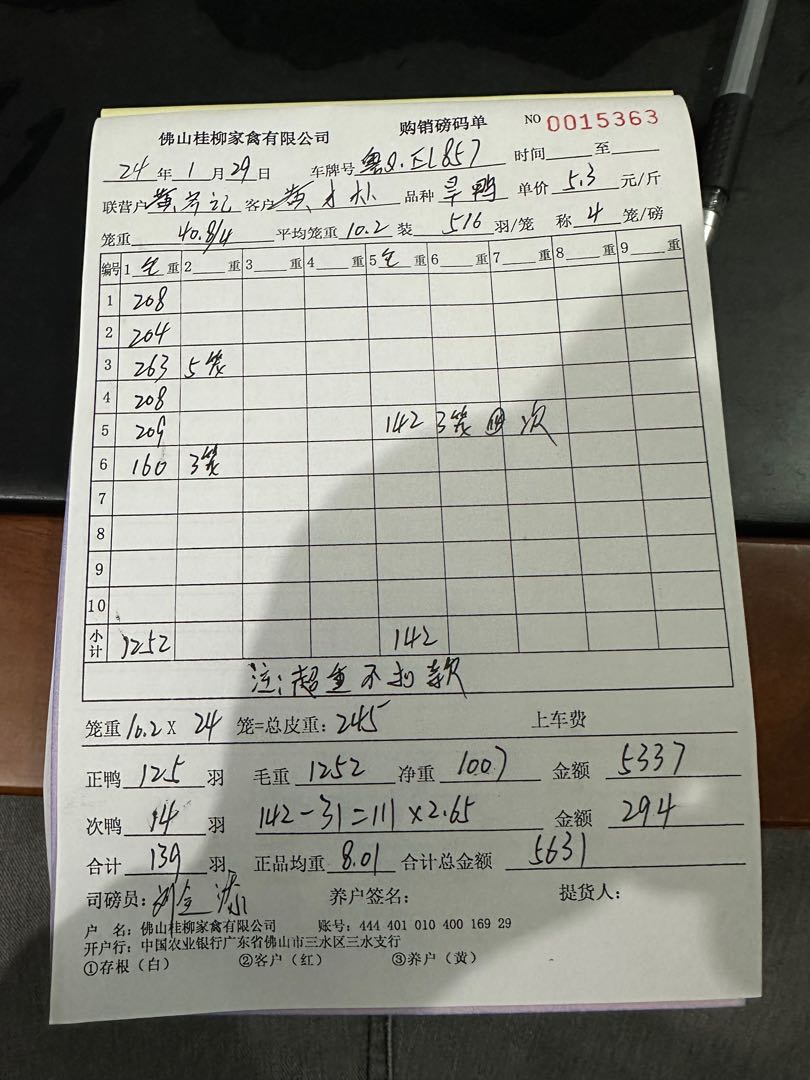 佛山桂柳家禽有限公司 购销磅码单 NO 0015363
24 年 1 月 29 日 车牌号 FL857 时间 至
联营户 黄 记 客户 黄 品种 旱鸭 单价 5.3 元/斤
笼重 40.8/4 平均笼重 10.2 装 516 羽/笼 称 4 笼/磅
编号 1 毛 重 2 重 3 重 4 重 5 毛 重 6 重 7 重 8 重 9 重
1 208
2 204
3 263 5笼
4 208
5 209 142 3笼 次
6 160 3笼
7
8
9
10
小计 1252 142
注:超重不扣款
笼重 10.2 X 24 笼=总皮重: 245 上车费
正鸭 125 羽 毛重 1252 净重 1007 金额 5337
次鸭 14 羽 142-31=111×2.65 金额 294
合计 139 羽 正品均重 8.01 合计总金额 5631
司磅员: 养户签名: 提货人:
户 名: 佛山桂柳家禽有限公司 账号: 444 401 010 400 169 29
开户行: 中国农业银行广东省佛山市三水区三水支行
①存根(白) ②客户(红) ③养户(黄)